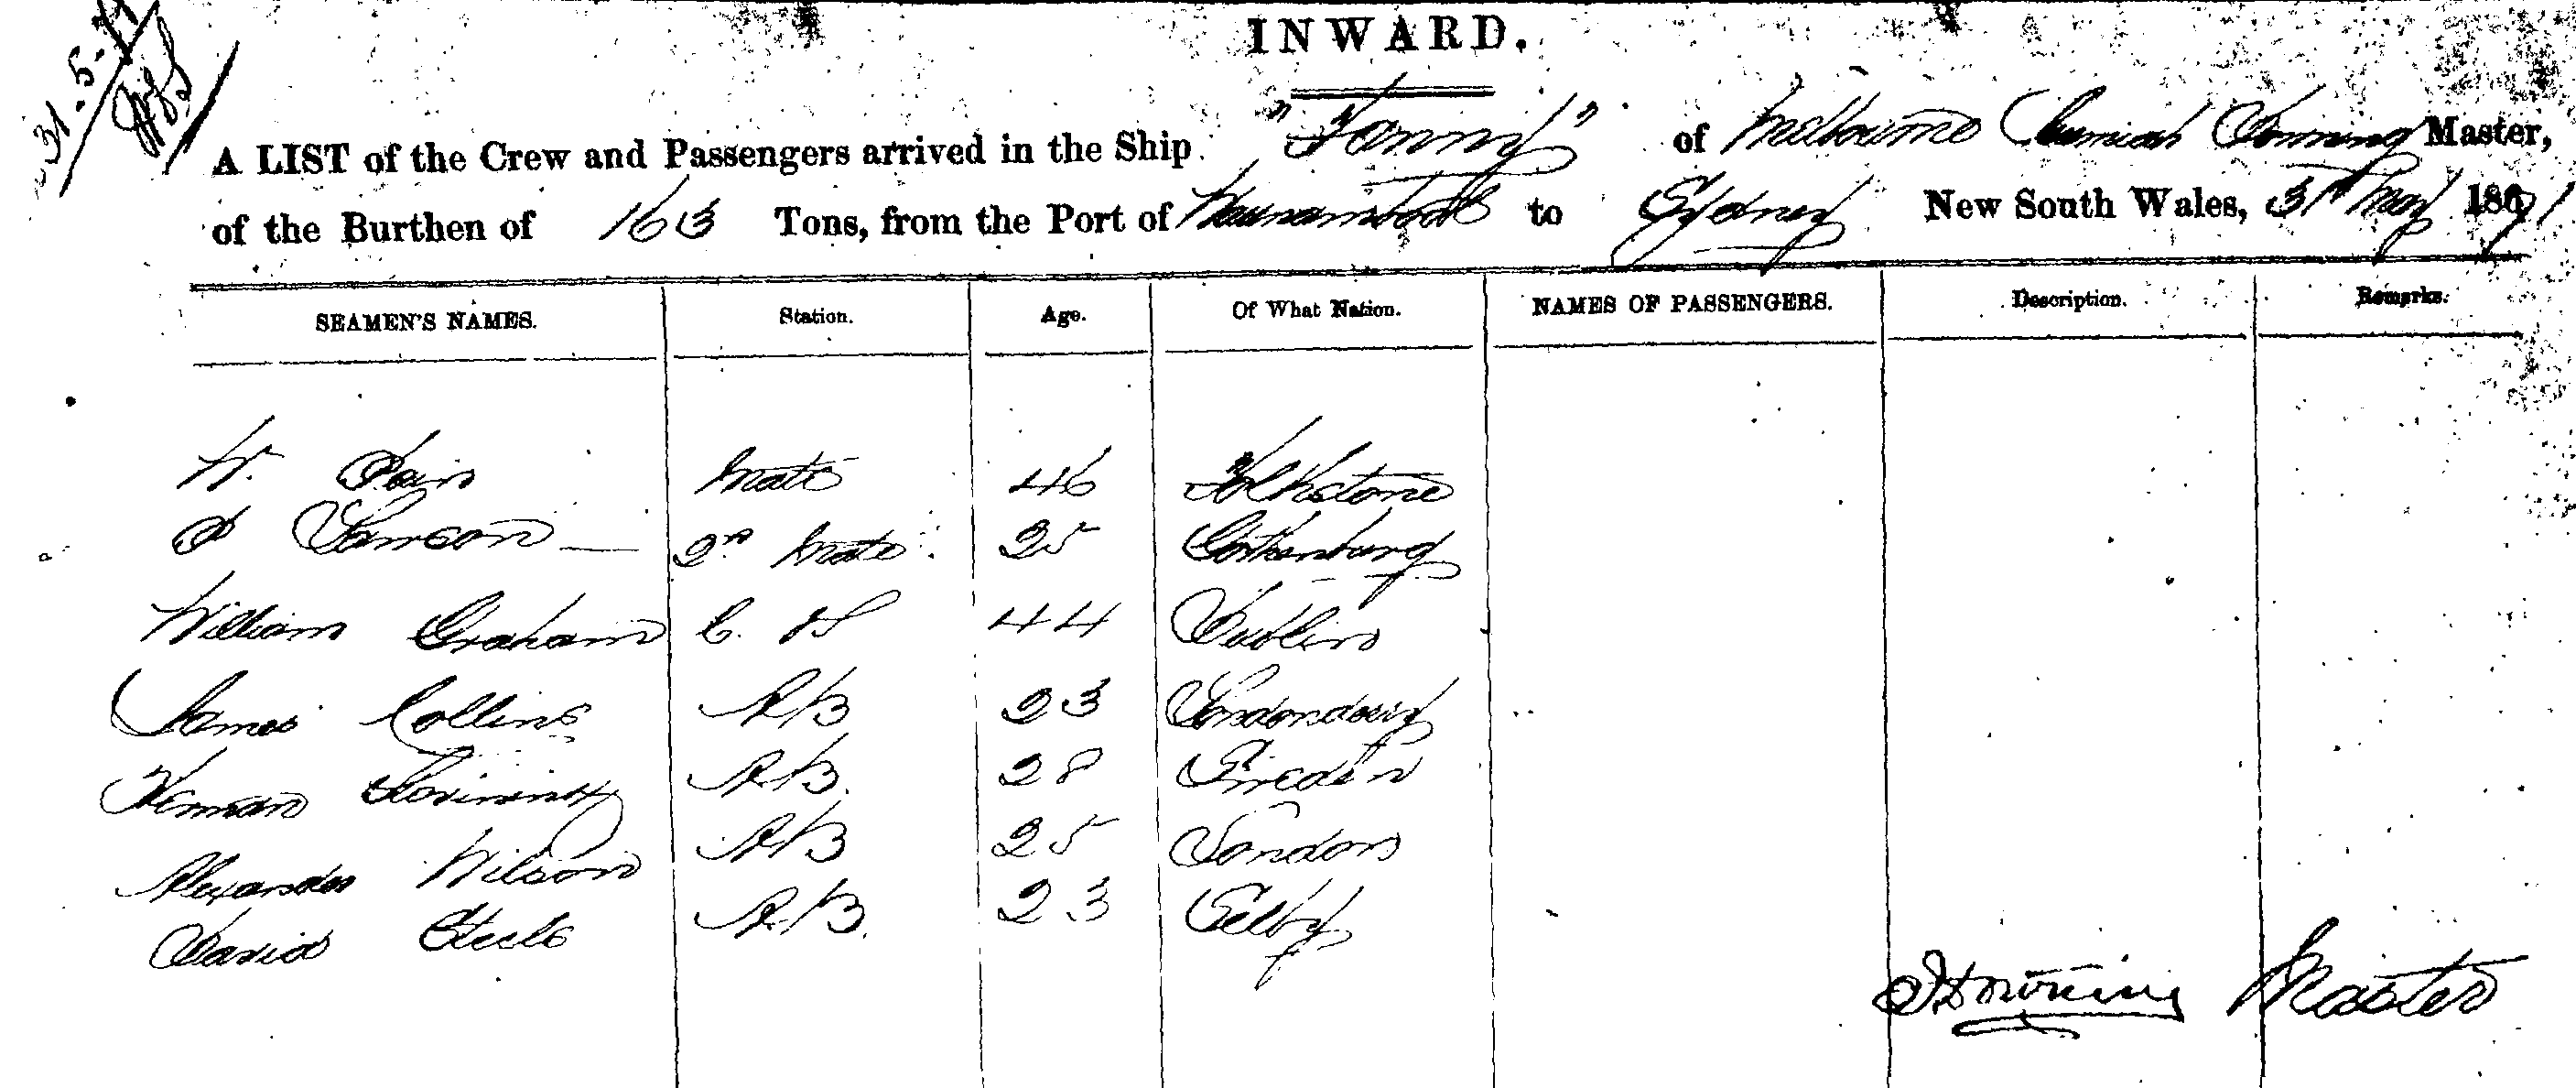 31-5-71
INWARD.
A LIST of the Crew and Passengers arrived in the Ship "Fanny" of Melbourne Jeremiah Downing Master,
of the Burthen of 163 Tons, from the Port of Warrnambool to Sydney New South Wales, 31st May 1871
SEAMEN'S NAMES. Station. Age. Of What Nation. NAMES OF PASSENGERS. Description. Remarks.
W. Pain Mate 46 Folkstone
P Samson 2nd Mate 25 Gothenburg
William Graham C. & S 44 Dublin
James Collins AB 23 Londonderry
Herman AB. 28 Sweden
Alexander Wilson AB 25 London
David Steele AB. 23 Selby
J Downing Master